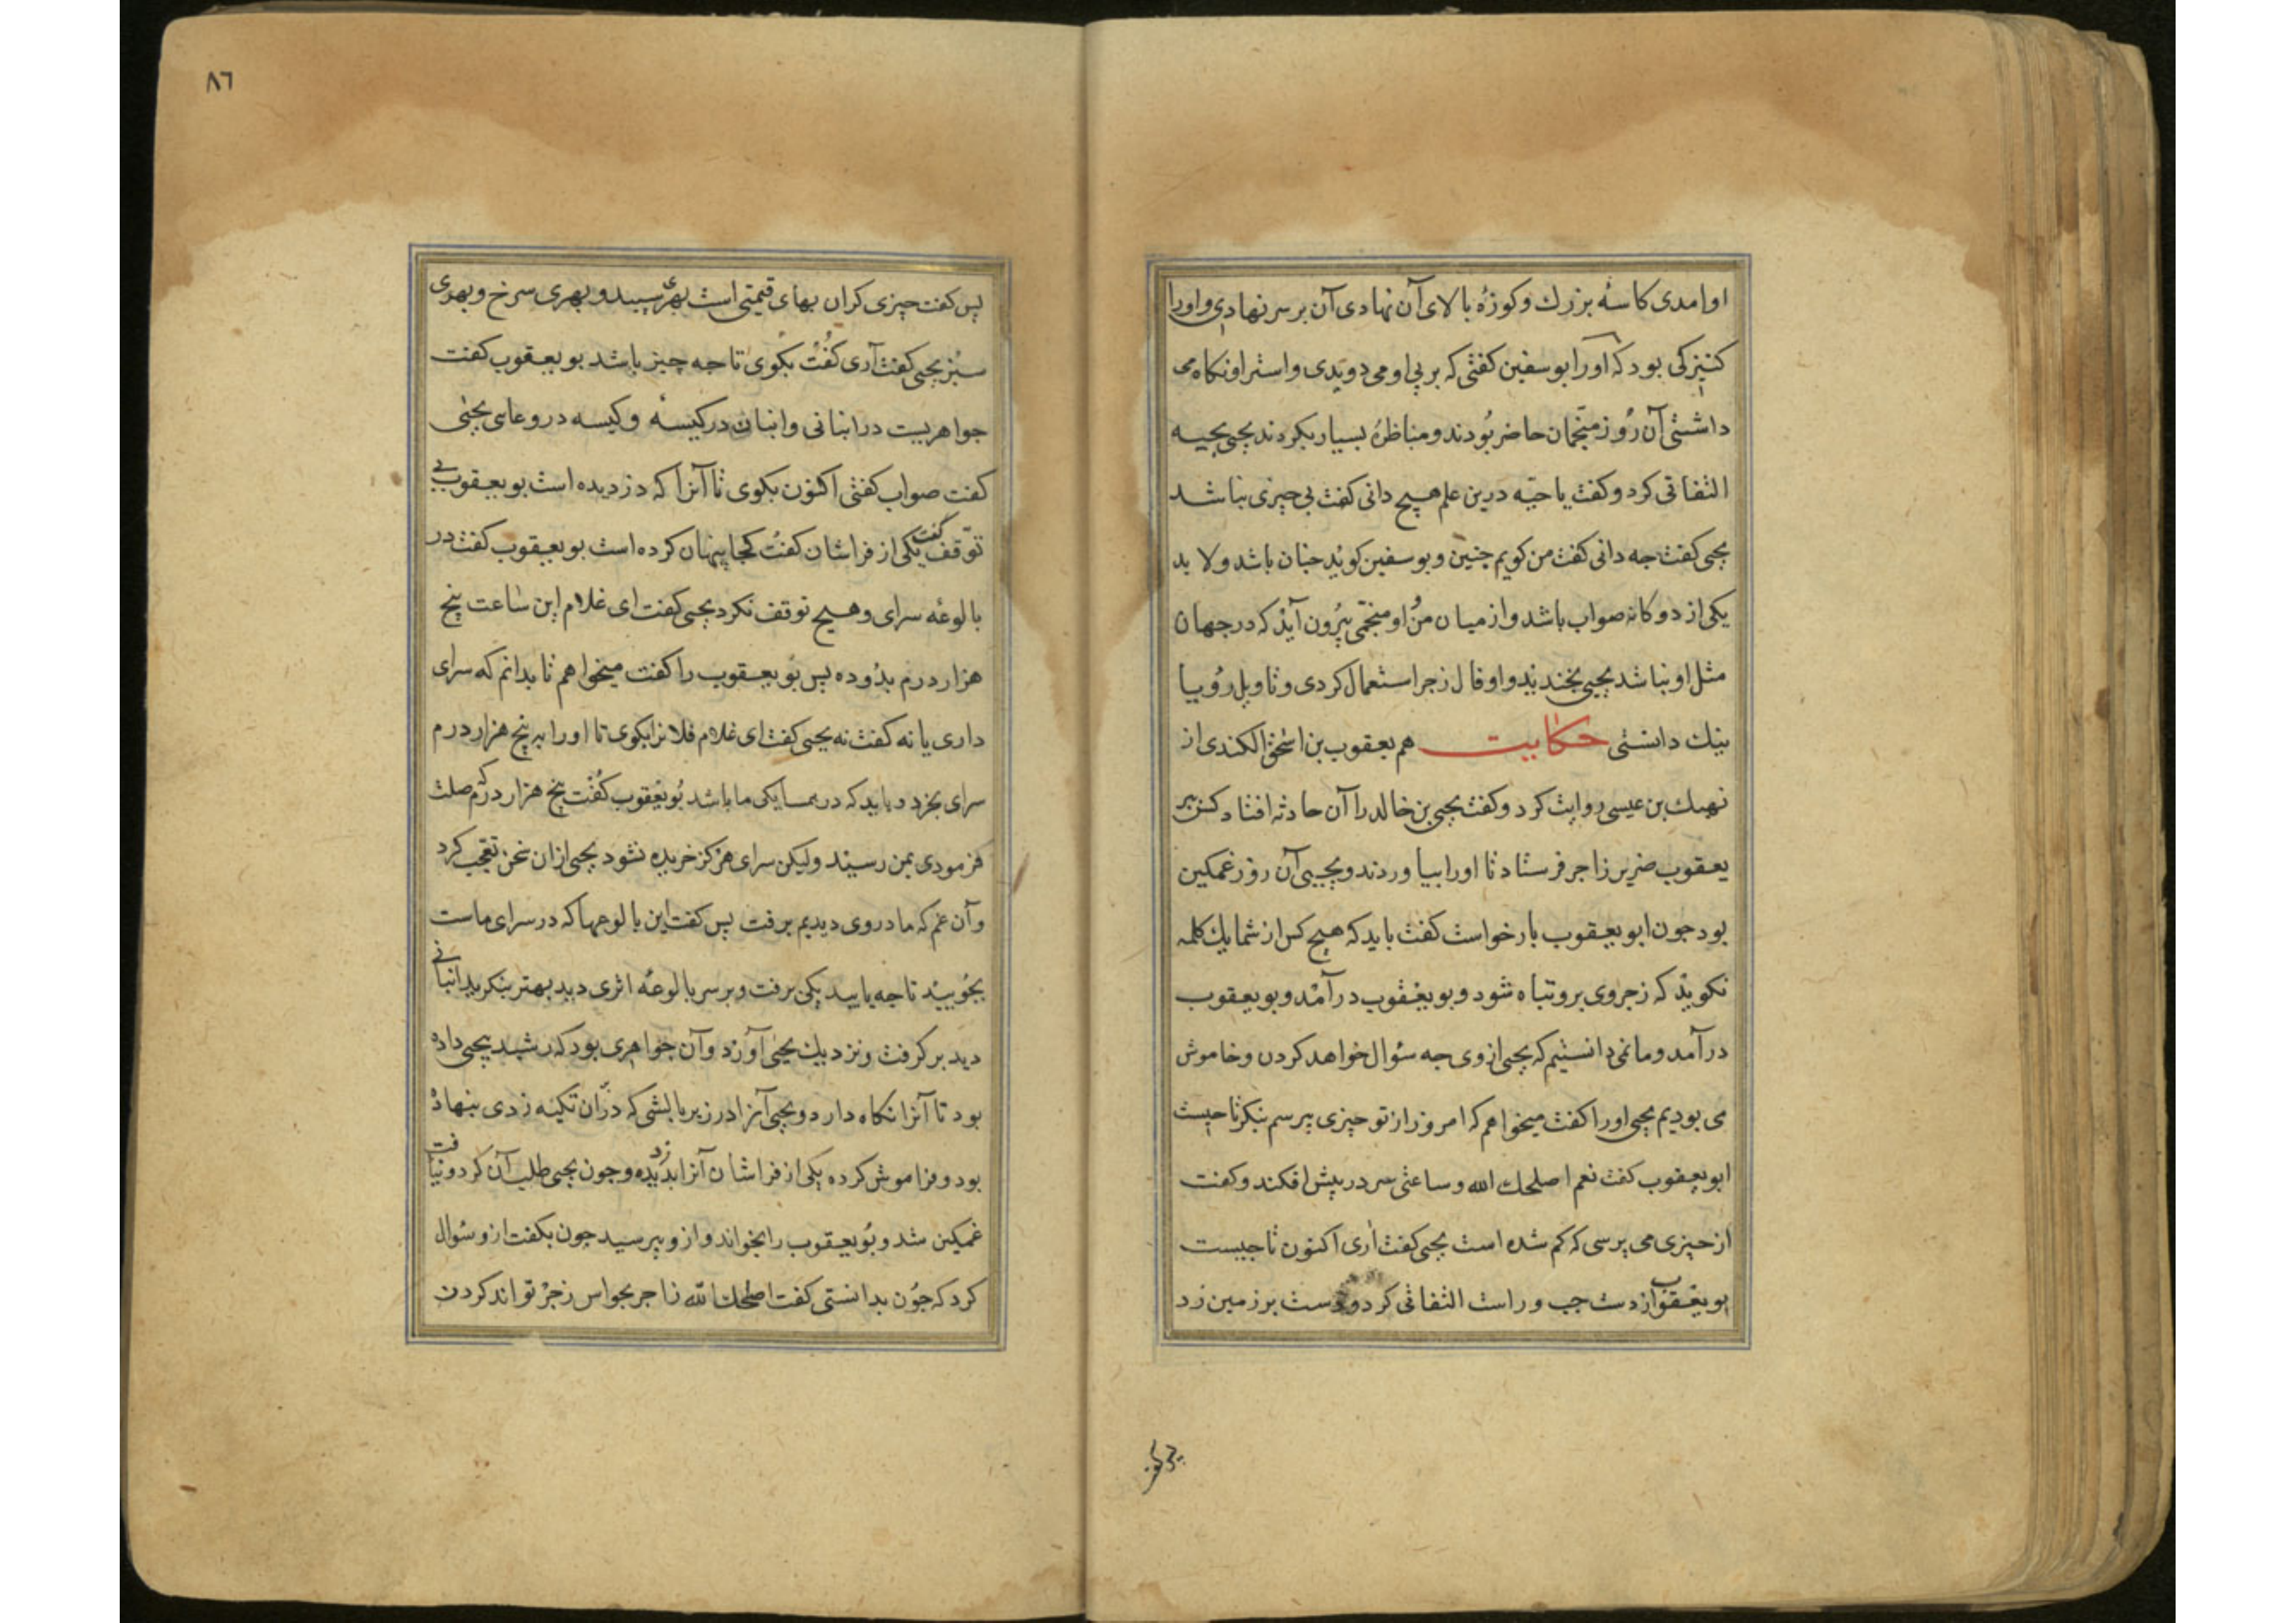 او امدی کاسهٔ بزرك و کوزهٔ بالای آن نهادی آن بر سر نهادی و او را
کنیزکی بود که او را بوسفین کفتی که بر پی او می دویدی و استر او نکاه می
داشتی آن روز منجمان حاضر بودند و مناظرهٔ بسیار بکردند یحیی بحیه
التفاتی کرد و کفت یا حیّه درین علم هیچ دانی کفت بی چیزی نباشد
یحیی کفت جه دانی کفت من کویم جنین و بوسفین کوید جنان باشد و لا بد
یکی از دو کانه صواب باشد و از میان من و او منجّمی بیرون آید که در جهان
مثل او نباشد یحیی بخندید و او فال زجر استعمال کردی و تاویل رؤیا
نیك دانستی حکایت هم یعقوب بن اسحٰق الکندی از
نهیك بن عیسی روایت کرد و کفت یحیی بن خالد را آن حادثه افتاد کس بر
یعقوب ضریر زاجر فرستاد تا او را بیاوردند و یحیی آن روز غمکین
بود جون ابو یعقوب بار خواست کفت باید که هیچ کس از شما یك کلمه
نکوید که زجر وی برو تباه شود و بو یعقوب درآمد و بو یعقوب
درآمد و ما نمی دانستیم که یحیی از وی جه سئوال خواهد کردن و خاموش
می بودیم یحیی او را کفت میخواهم که امروز از تو چیزی پرسم بنکر تا چیست
ابو یعقوب کفت نعم اصلحك الله و ساعتی سر در پیش افکند و کفت
از چیزی می پرسی که کم شده است یحیی کفت اری اکنون تا چیست
بو یعقوب از دست جب و راست التفاتی کرد و دست بر زمین زد
٨٦
پس کفت چیزی کران بهای قیمتی است بهری سپید و بهری سرخ و بهری
سبز یحیی کفت آری کفت بکوی تا جه چیز باشد بو یعقوب کفت
جواهریست در انبانی و انبان در کیسهٔ و کیسه در وعای یحیی
کفت صواب کفتی اکنون بکوی تا آنرا که دزدیده است بو یعقوب بی
توقف کفت یکی از فراشان کفت کجا پنهان کرده است بو یعقوب کفت در
بالوعهٔ سرای و هیچ توقف نکرد یحیی کفت ای غلام این ساعت پنج
هزار درم بدو ده پس بو یعقوب را کفت میخواهم تا بدانم که سرای
داری یا نه کفت نه یحیی کفت ای غلام فلانرا بکوی تا او را به پنج هزار درم
سرای بخرد و باید که در همسایکی ما باشد بو یعقوب کفت پنج هزار درم که صلت
فرمودی بمن رسید ولیکن سرای هرکز خریده نشود یحیی ازان سخن تعجب کرد
و آن غم که ما در وی دیدیم برفت پس کفت این بالوعها که در سرای ماست
بجویید تا جه یابید یکی برفت و بر سر بالوعهٔ اثری دید بهتر بنکرید انبانی
دید بر کرفت و نزدیك یحیی آورد و آن جواهری بود که رشید بیحیی داده
بود تا آنرا نکاه دارد و یحیی آنرا در زیر بالشی که دران تکیه زدی بنهاده
بود و فراموش کرده یکی از فراشان آنرا بدزدیده و جون یحیی طلب آن کرد و نیافت
غمکین شد و بو یعقوب را بخواند و ازو بپرسید جون بکفت ازو سئوال
کرد که جون بدانستی کفت اصلحك الله زاجر بحواس زجر تواند کردن